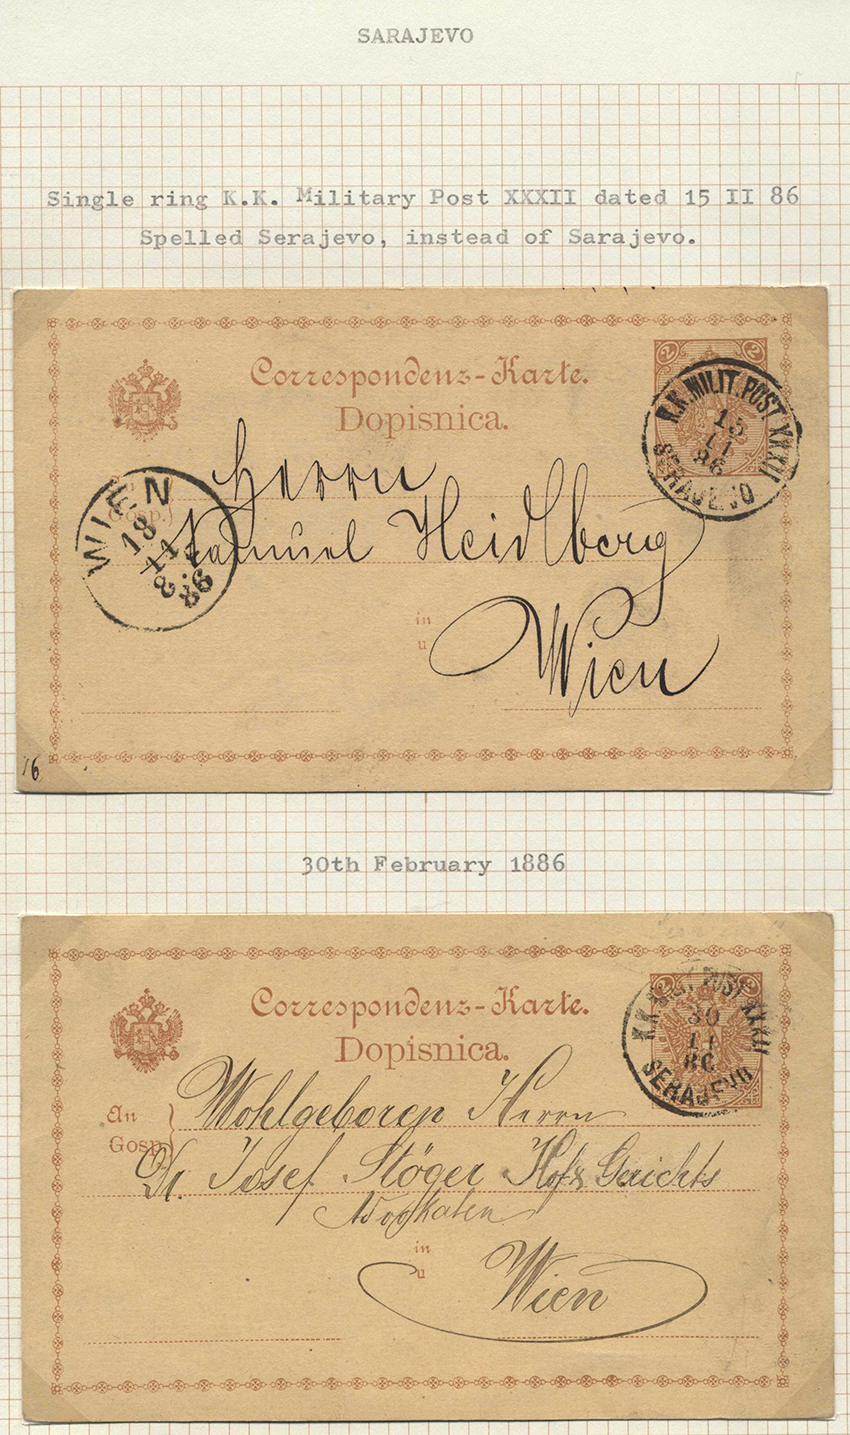 SARAJEVO
Single ring K.K. Military Post XXXII dated 15 II 86
Spelled Serajevo, instead of Sarajevo.
Correspondenz-Karte.
Dopisnica.
2 2
K.K.MILIT.POST XXXII
15
11
86
SERAJEVO
Herrn
Gosp.)
WIEN
18
11
8.F
86
Samuel Heidlberg
in
u
Wien
16
30th February 1886
Correspondenz-Karte.
Dopisnica.
2 2
K.K. MILIT. POST XXXII
30
11
86
SERAJEVO
An
Gosp.
Wohlgeboren Herrn
Dr. Josef Stöger Hof & Gerichts
Advokaten
in
u
Wien